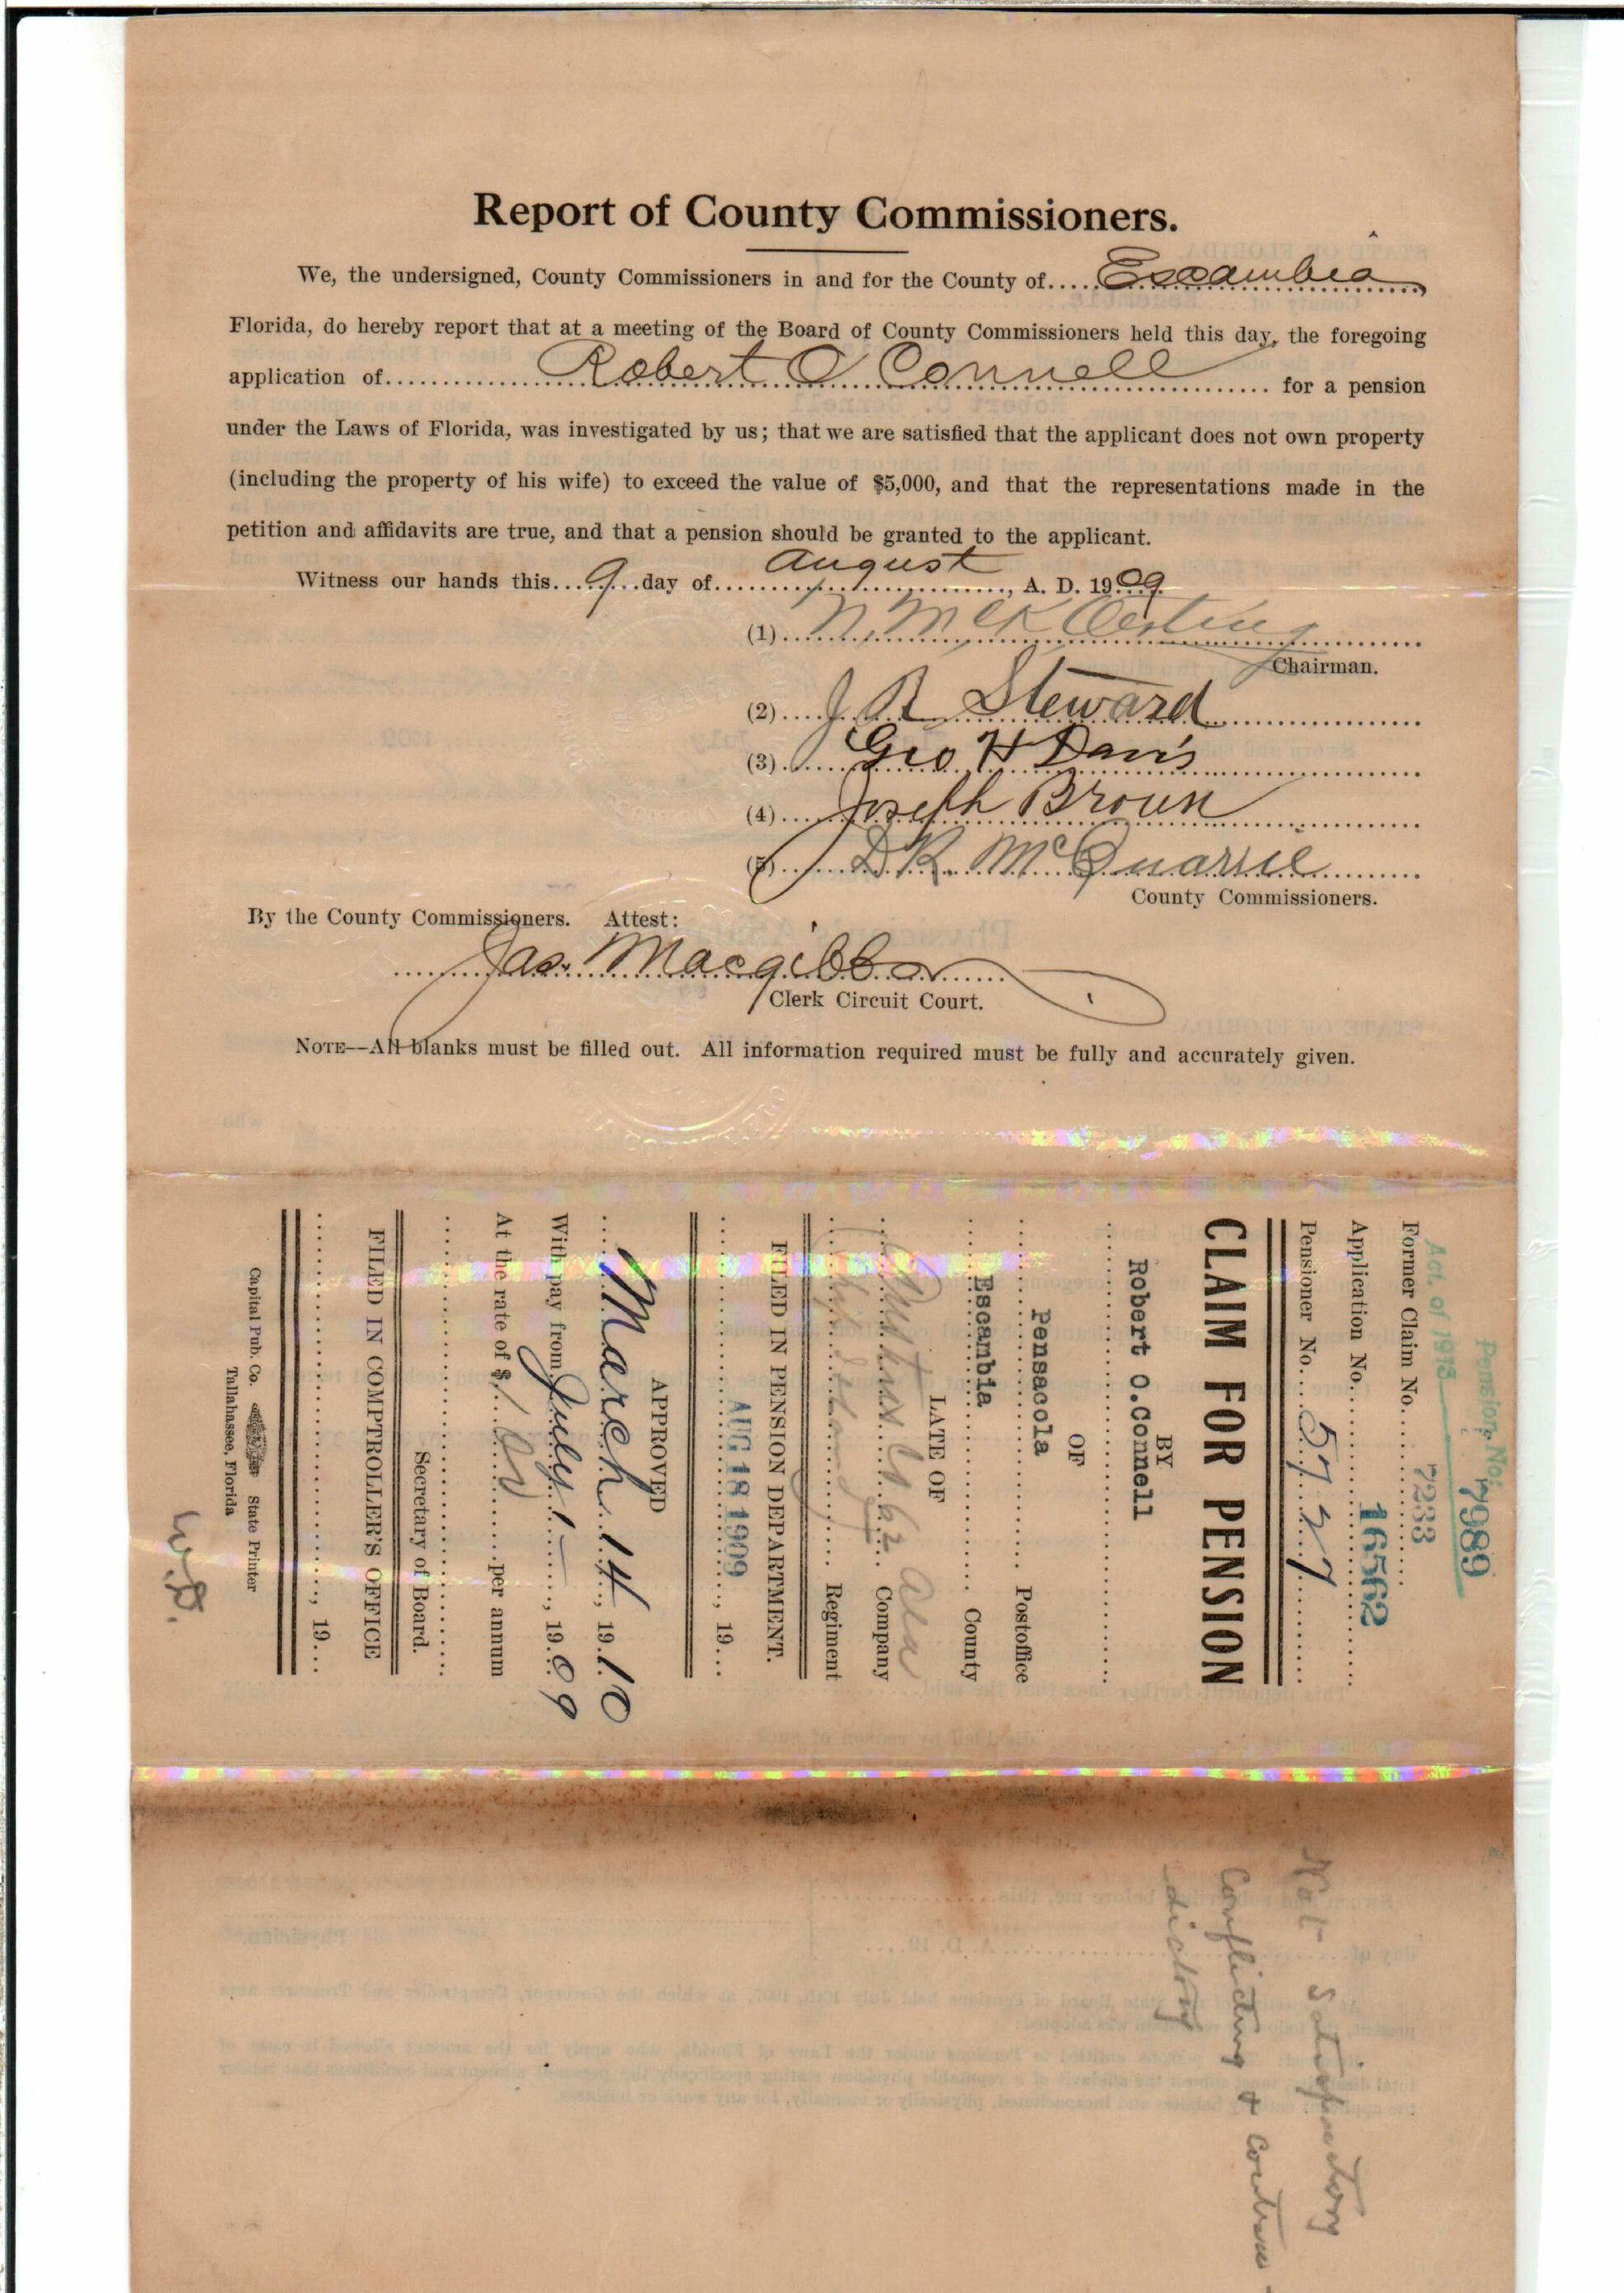 Report of County Commissioners.
We, the undersigned, County Commissioners in and for the County of Escambia,
Florida, do hereby report that at a meeting of the Board of County Commissioners held this day, the foregoing
application of Robert O Connell for a pension
under the Laws of Florida, was investigated by us; that we are satisfied that the applicant does not own property
(including the property of his wife) to exceed the value of $5,000, and that the representations made in the
petition and affidavits are true, and that a pension should be granted to the applicant.
Witness our hands this 9 day of August, A. D. 1909
(1) N. McK Oesting
Chairman.
(2) J R Steward
(3) Geo H Davis
(4) Joseph Broun
(5) D K. McQuarrie
County Commissioners.
By the County Commissioners. Attest:
Jas. Macgibbon
Clerk Circuit Court.
NOTE--All blanks must be filled out. All information required must be fully and accurately given.
Pension No. 7989
Act. of 1913
Former Claim No. 7233
Application No. 16562
Pensioner No. 5727
CLAIM FOR PENSION
BY
Robert O.Connell
OF
Pensacola Postoffice
Escambia County
LATE OF
62 Ala
Company
Regiment
FILED IN PENSION DEPARTMENT.
AUG 18 1909, 19
APPROVED
March 14, 1910
With pay from July 1, 1909
At the rate of $ per annum
Secretary of Board.
FILED IN COMPTROLLER'S OFFICE
, 19
Capital Pub. Co. State Printer
Tallahassee, Florida
Not Satisfactory
Conflicting & contra-
dictory